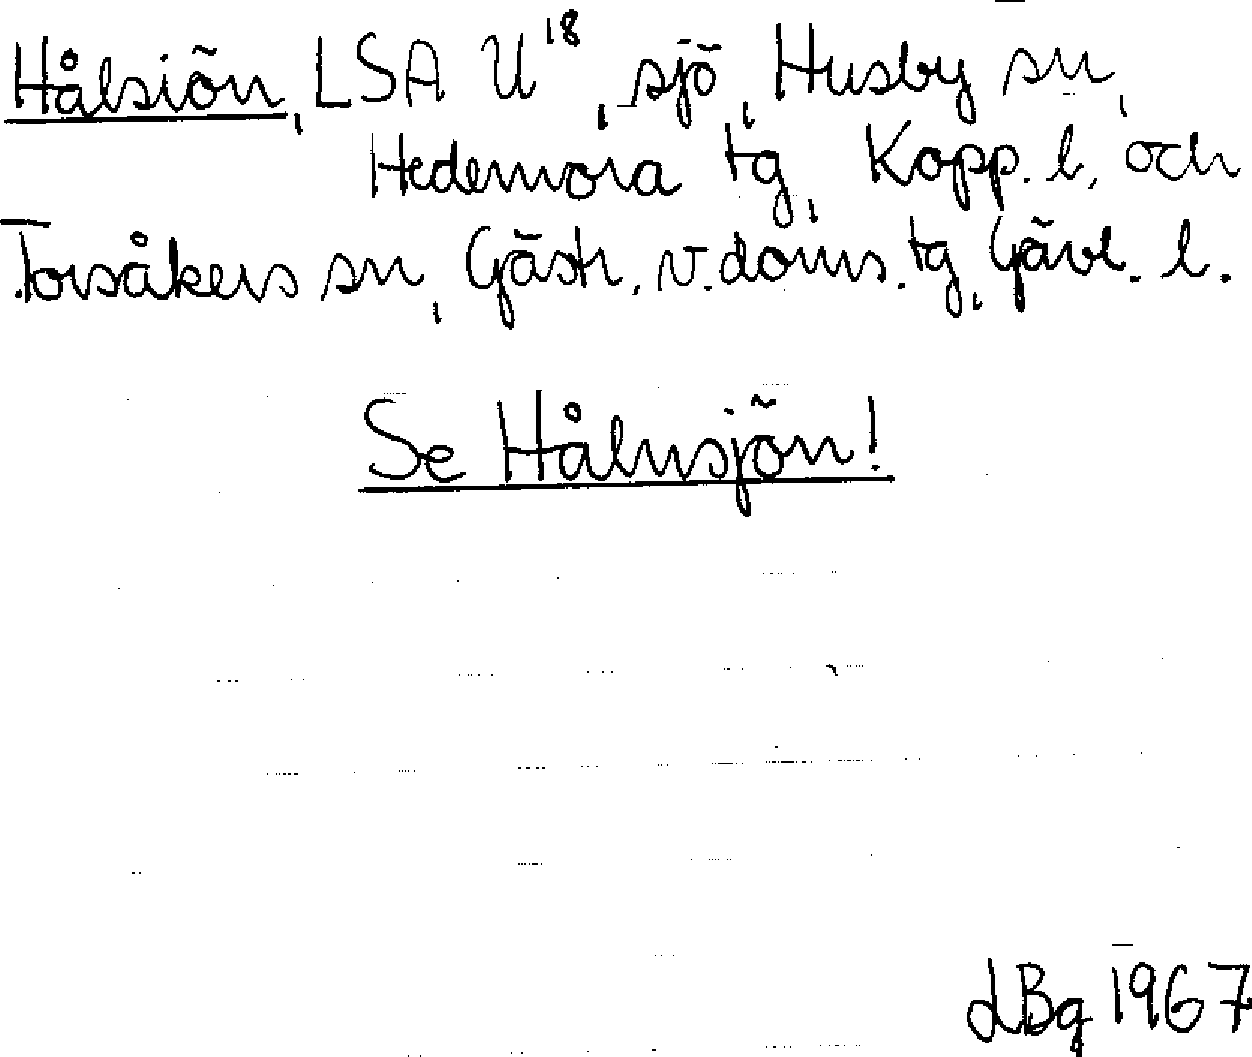 Hålsiön, LSA U¹⁸, sjö, Husby sn,
Hedemora tg, Kopp. l, och
Torsåkers sn, Gästr. v. doms. tg, Gävl. l.
Se Hålmsjön!
LBg 1967